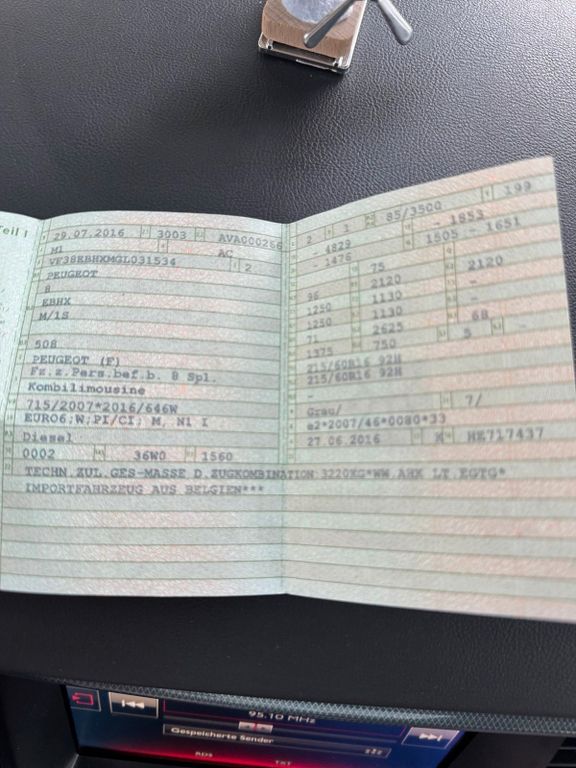 Teil 1
29.07.2016 3003 AVA000256
M1 AC
VF38EBHXMGL031534 2
PEUGEOT
8
EBHX
M/1S
508
PEUGEOT (F)
Fz.z.Pers.bef.b. 8 Spl.
Kombilimousine
715/2007*2016/646W
EURO6;W;PI/CI; M, N1 I
Diesel
0002 36W0 1560
TECHN.ZUL.GES-MASSE D.ZUGKOMBINATION:3220KG*WW.AHK LT.EGTG*
IMPORTFAHRZEUG AUS BELGIEN***
2 1 85/3500 199
- 4829 - 1853
- 1476 1505 - 1651
75
96 2120 2120
1250 1130 -
1250 1130 -
71 2625 68
1375 750 5 -
215/60R16 92H
215/60R16 92H
-
Grau/ 7/
e2*2007/46*0080*33
27.06.2016 K HE717437
95.10 MHz
Gespeicherte Sender
RDS TXT